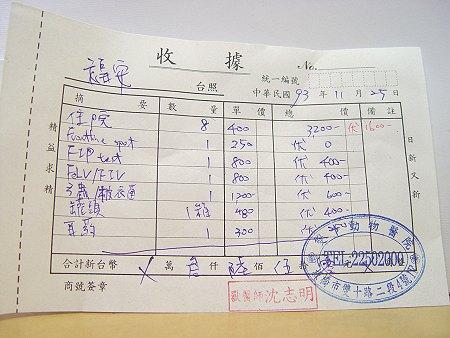 收據 No.
福安 台照 統一編號
中華民國 93 年 11 月 25 日
摘要 數量 單價 總價 備註
住院 8 400 3200- 伏 1600-
Frontline spot 1 250 伏 0
FIP test 1 800 伏 400-
FeLV/FIV 1 800 伏 400-
1 1200- 伏 600-
罐頭 1箱 480 伏 400-
耳藥 1 300 伏
精益求精
日新又新
合計新台幣 X 萬 叁 仟 陸 佰 伍 拾 零 元
商號簽章
獸醫師 沈志明
動物醫院
TEL:22502000
市雙十路二段4號